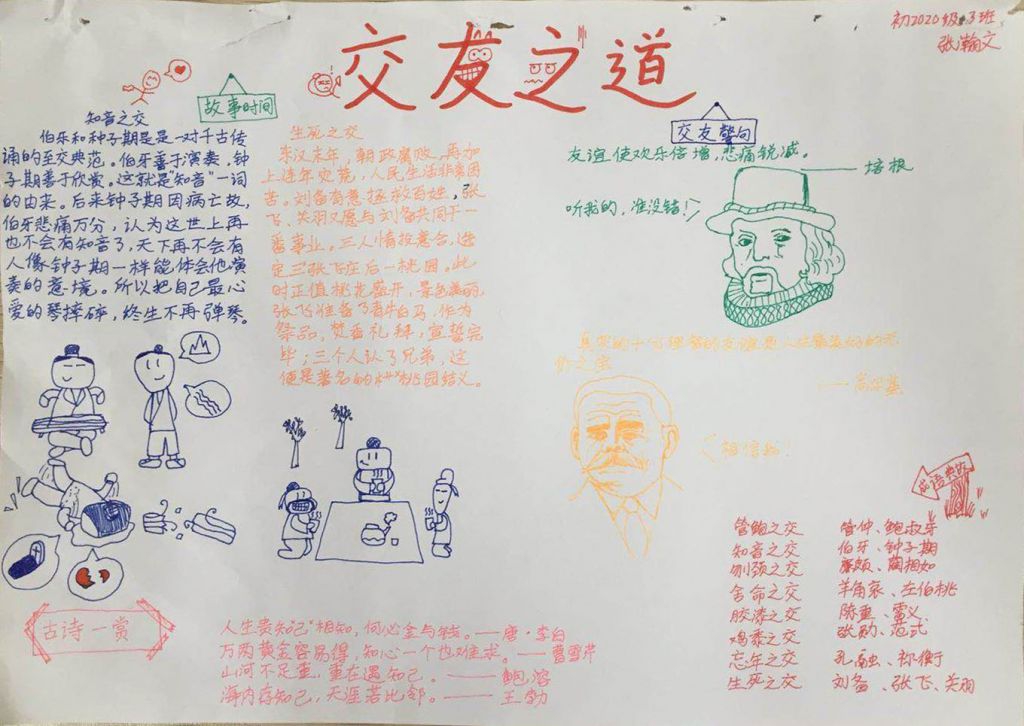 初2020级3班
张瀚文
交友之道
故事时间
知音之交
伯乐和种子期是是一对千古传
诵的至交典范。伯牙善于演奏，钟
子期善于欣赏。这就是"知音"一词
的由来。后来钟子期因病亡故，
伯牙悲痛万分，认为这世上再
也不会有知音了，天下再不会有
人像钟子期一样能体会他演
奏的意境。所以把自己最心
爱的琴摔碎，终生不再弹琴。
生死之交
东汉末年，朝政腐败，再加
上连年灾荒，人民生活非常困
苦。刘备有意拯救百姓，张
飞、关羽又愿与刘备共同干一
番事业。三人情投意合，选
定三张飞庄后一桃园。此
时正值桃花盛开，景色美丽，
张飞准备了青牛白马，作为
祭品，焚香礼拜，宣誓完
毕；三个人认了兄弟，这
便是著名的桃园结义。
交友警句
友谊使欢乐倍增，悲痛锐减。
培根
听我的，准没错！
真实的十分理智的友谊是人生最美好的无
价之宝
——高尔基
相信我！
成语典故
管鲍之交 管仲、鲍叔牙
知音之交 伯牙、钟子期
刎颈之交 廉颇、蔺相如
舍命之交 羊角哀、左伯桃
胶漆之交 陈重、雷义
鸡黍之交 张劭、范式
忘年之交 孔融、祢衡
生死之交 刘备、张飞、关羽
古诗一赏
人生贵知己"相知，何必金与钱。——唐·李白
万两黄金容易得，知心一个也难求。——曹雪芹
山河不足重，重在遇知己。——鲍溶
海内存知己，天涯若比邻。——王勃